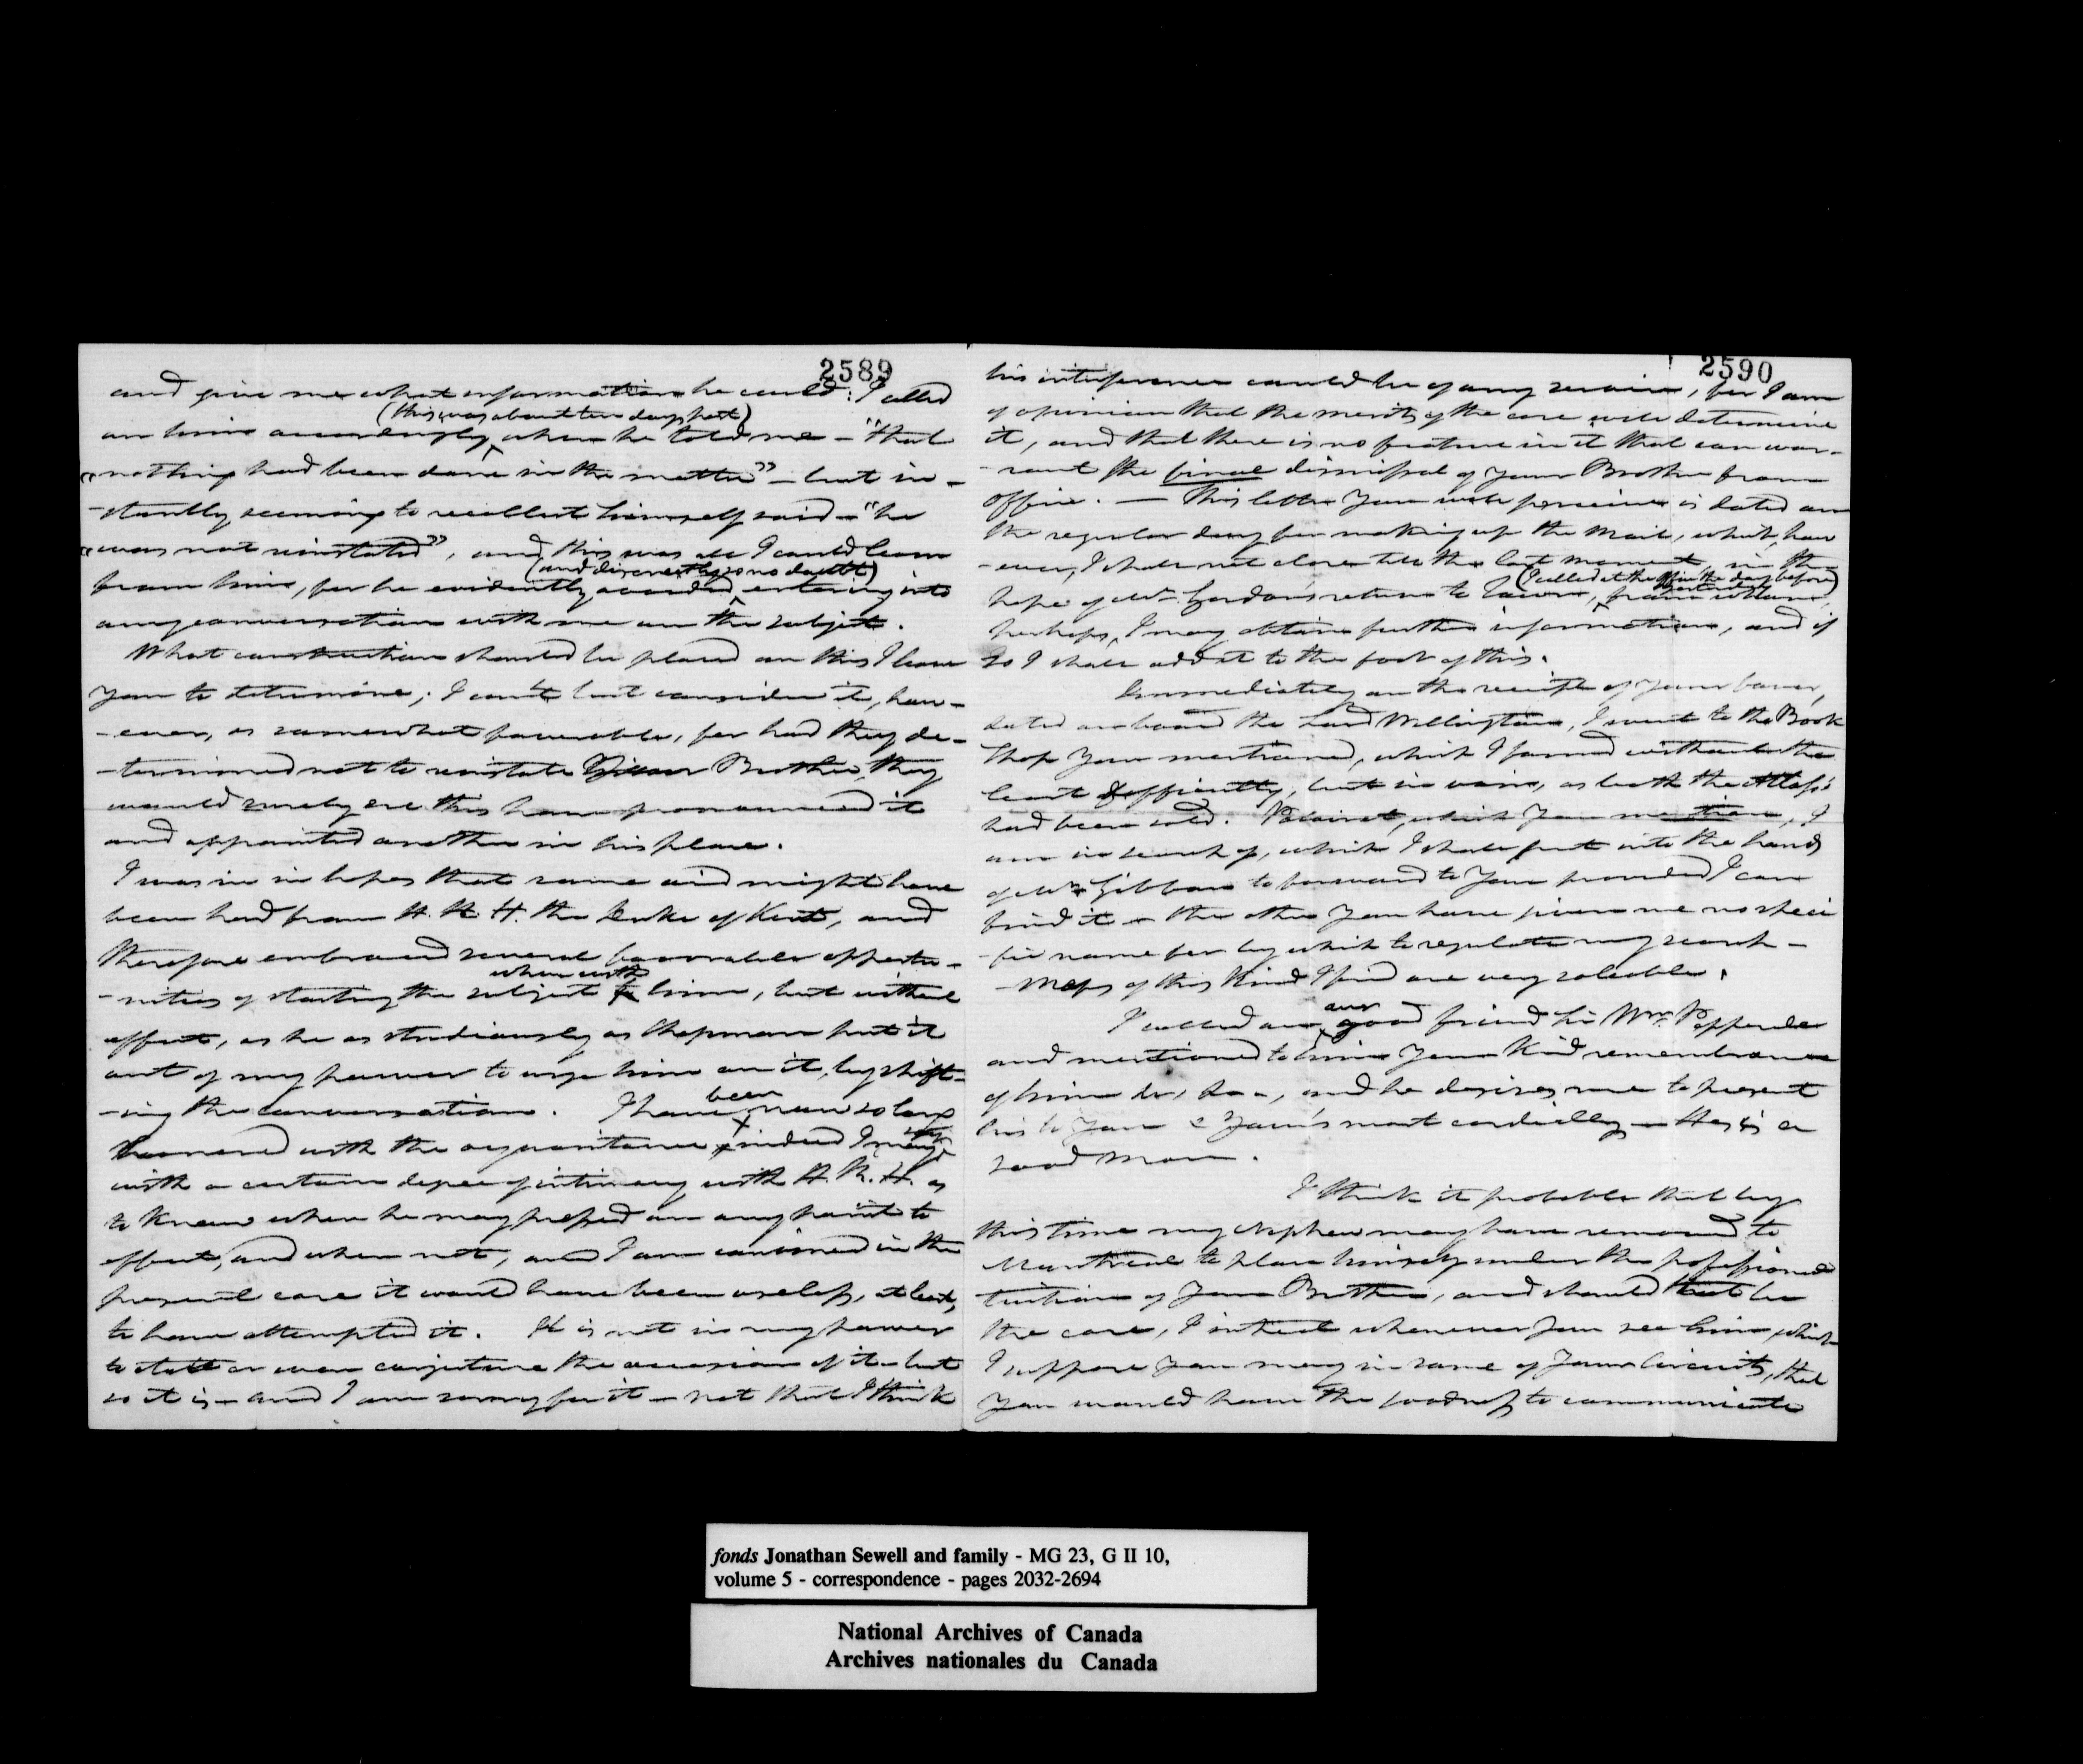 2589
and give me what information he could: I called
(this was about ten days past)
on him accordingly, when he told me – "that
"nothing had been done in the matter" – but in-
-stantly seeming to recollect himself said – "he
"was not reinstated", and this was all I could learn
(and discreetly so no doubt)
from him, for he evidently avoided entering into
any conversation with me on the subject.
What construction should be placed on this I leave
you to determine; I can't but consider it, how-
-ever, as somewhat favorable, for had they de-
-termined not to reinstate Your Brother, they
would surely ere this have pronounced it
and appointed another in his place.
I was in in hopes that some aid might have
been had from H. R. H. the Duke of Kent, and
therefore embraced several favorable opportu-
when with
-nities of starting the subject to him, but without
effect, as he as studiously as Chapman put it
out of my power to urge him on it, by shift-
-ing the conversation. I have been now so long
honored with the acquaintance indeed I may
with a certain degree of intimacy with H. R. H. as
to know when he may be pressed on any point to
effect, and when not, and I am convinced in the
present case it would have been useless, at least,
to have attempted it. It is not in my power
to state or even conjecture the occasion of it – but
so it is – and I am sorry for it – not that I think
2590
his interference could be of any service, for I am
of opinion that the merits of the case will determine
it, and that there is no feature in it that can war-
-rant the final dismissal of your Brother from
office. — This letter You will perceive is dated on
the regular day for making up the Mail, which, how
-ever, I shall not close till the last moment, in the
(I called at the office the day before
yesterday)
hope of Mr. Gordon's return to Town, from whom,
perhaps, I may obtain further information, and if
so I shall add it to the foot of this.
Immediately on the receipt of Your favor,
dated on board the Lord Wellington, I went to the Book
Shop You mentioned, which I found without the
least difficulty, but in vain, as both the Atlass's
had been sold. which You mention, I
am in search of, which I shall put into the hands
of Mr Gibbon to forward to You provided I can
find it – the other You have given me no speci
-fic name for by which to regulate my search –
Maps of this kind I find are very saleable.
I called on our good friend Sir Wm. Pepperell
and mentioned to him Your Kind remembrance
of him &c, &c –, and he desires me to present
his to You & Your's most cordially – He is a
good Man.
I think it probable that by
this time my Nephew may have removed to
Montreal to place himself under the professional
tuition of Your Brother, and should that be
the case, I intreat whenever You see him, which
I suppose You may in some of Your Circuits, that
You would have the goodness to communicate
fonds Jonathan Sewell and family - MG 23, G II 10,
volume 5 - correspondence - pages 2032-2694
National Archives of Canada
Archives nationales du Canada